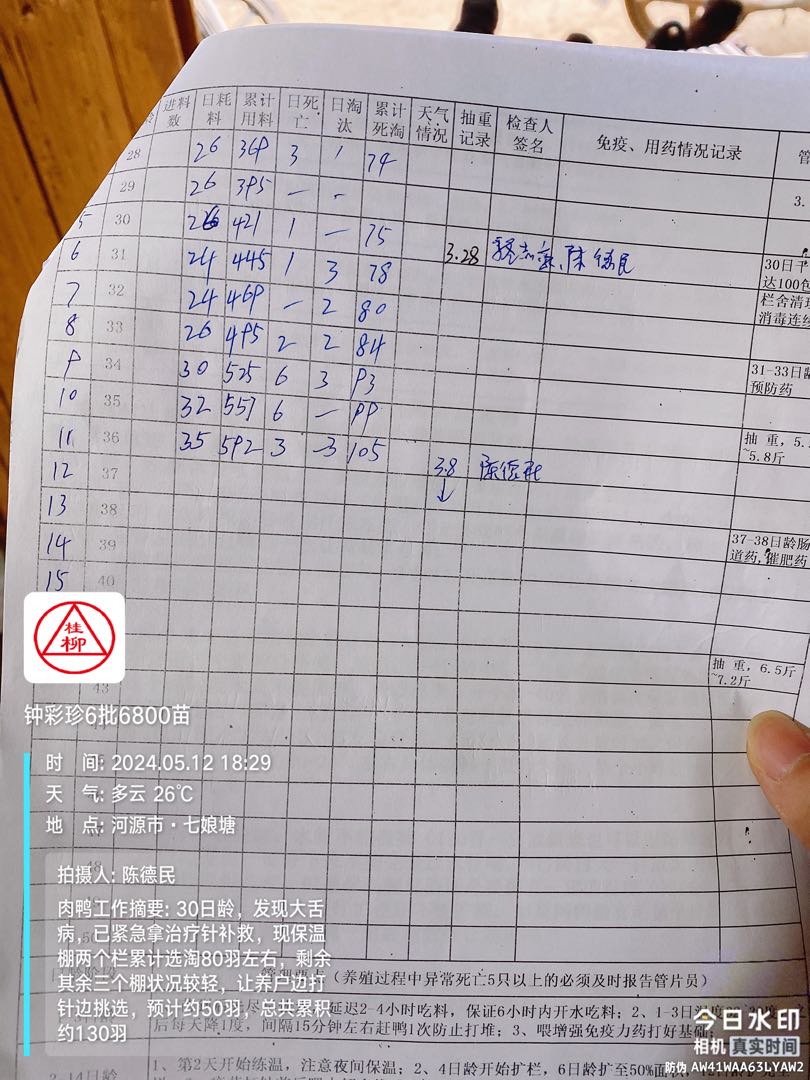 龄 进料数 日耗料 累计用料 日死亡 日淘汰 累计死淘 天气情况 抽重记录 检查人签名 免疫、用药情况记录 管
28 26 369 3 1 74
29 26 395 — - 3.
5 30 26 421 1 — 75
6 31 24 445 1 3 78 3.28 陈德民 30日
达100包
7 32 24 469 — 2 80 栏舍清
消毒连续
8 33 26 495 2 2 84
9 34 30 525 6 3 93 31-33日龄
预防药
10 35 32 557 6 — 99
11 36 35 592 3 3 105 抽重，5.
~5.8斤
12 37 3.8 陈德民
13 38
14 39 37-38日龄肠
道药,催肥药
15 40
抽重，6.5斤
~7.2斤
43
桂柳
钟彩珍6批6800苗
时 间: 2024.05.12 18:29
天 气: 多云 26℃
地 点: 河源市·七娘塘
48
拍摄人: 陈德民
肉鸭工作摘要: 30日龄，发现大舌
病，已紧急拿治疗针补救，现保温
棚两个栏累计选淘80羽左右，剩余
其余三个棚状况较轻，让养户边打
针边挑选，预计约50羽，总共累积
约130羽
(养殖过程中异常死亡5只以上的必须及时报告管片员)
延迟2-4小时吃料，保证6小时内开水吃料；2、1-3日
后每天降1度，间隔15分钟左右赶鸭1次防止打堆；3、喂增强免疫力药打好基础
2-14日龄 1、第2天开始练温，注意夜间保温；2、4日龄开始扩栏，6日龄扩至50%面积
今日水印
相机 真实时间
防伪 AW41WAA63LYAW2